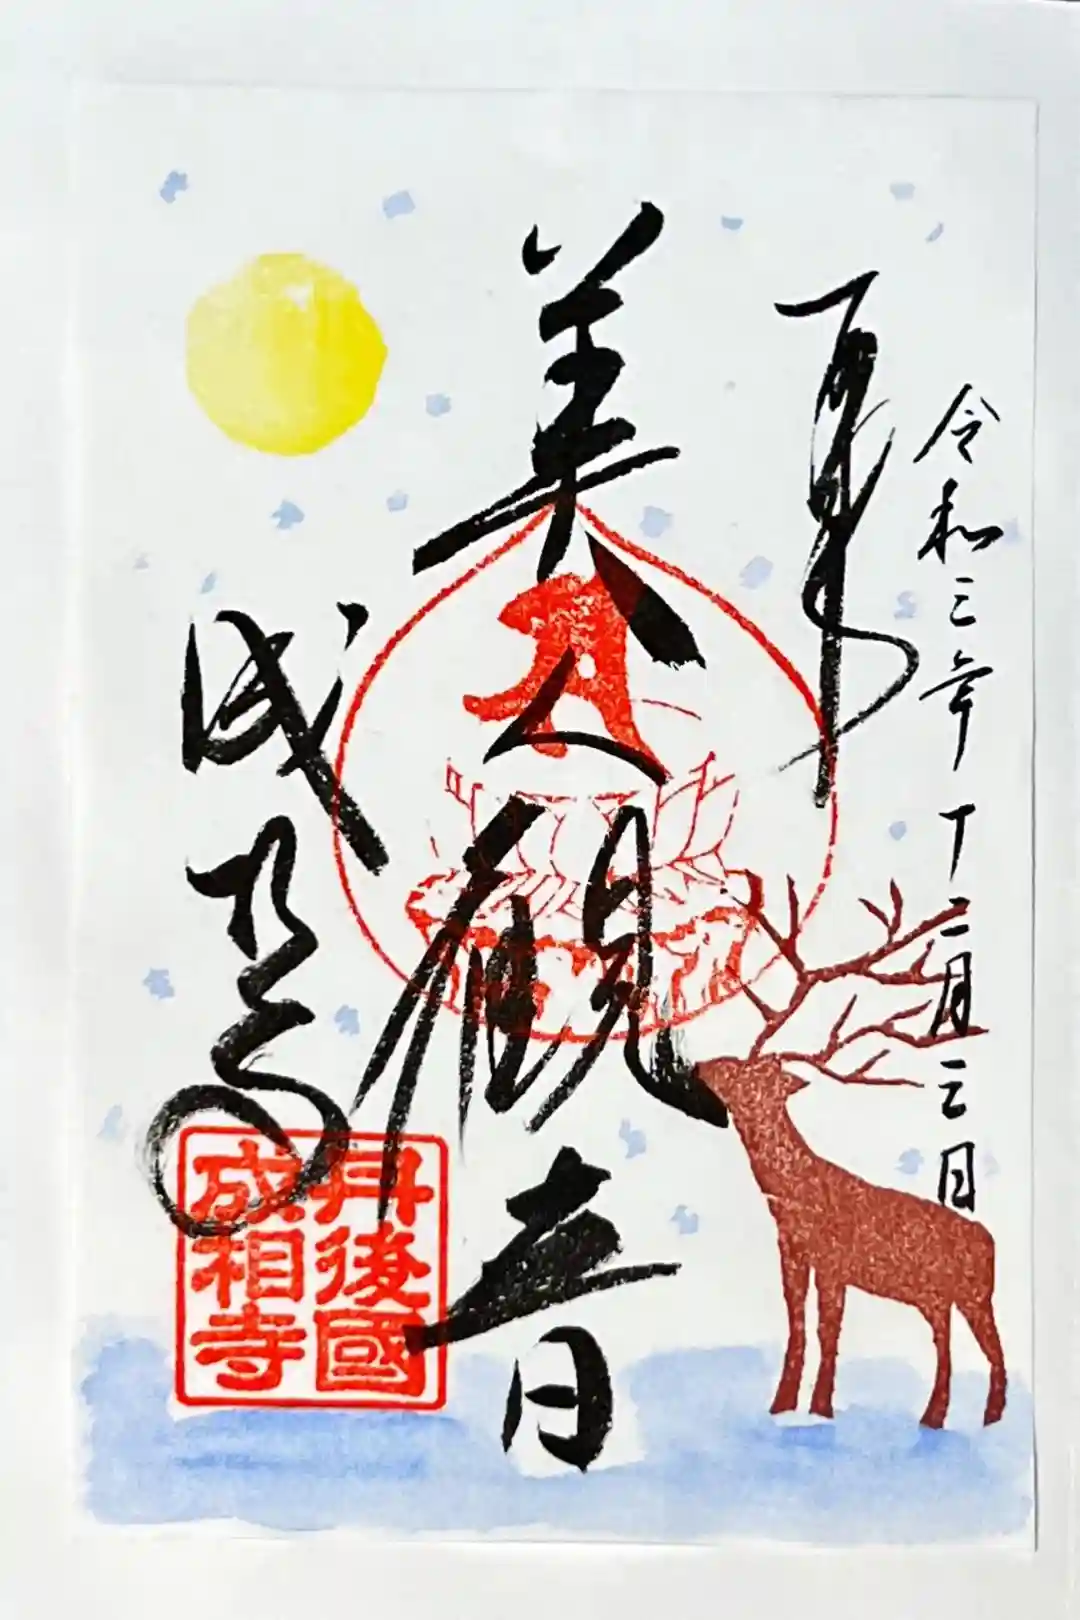 令和三年十二月三日
奉拝
美人観音
成相寺
丹後國
成相寺